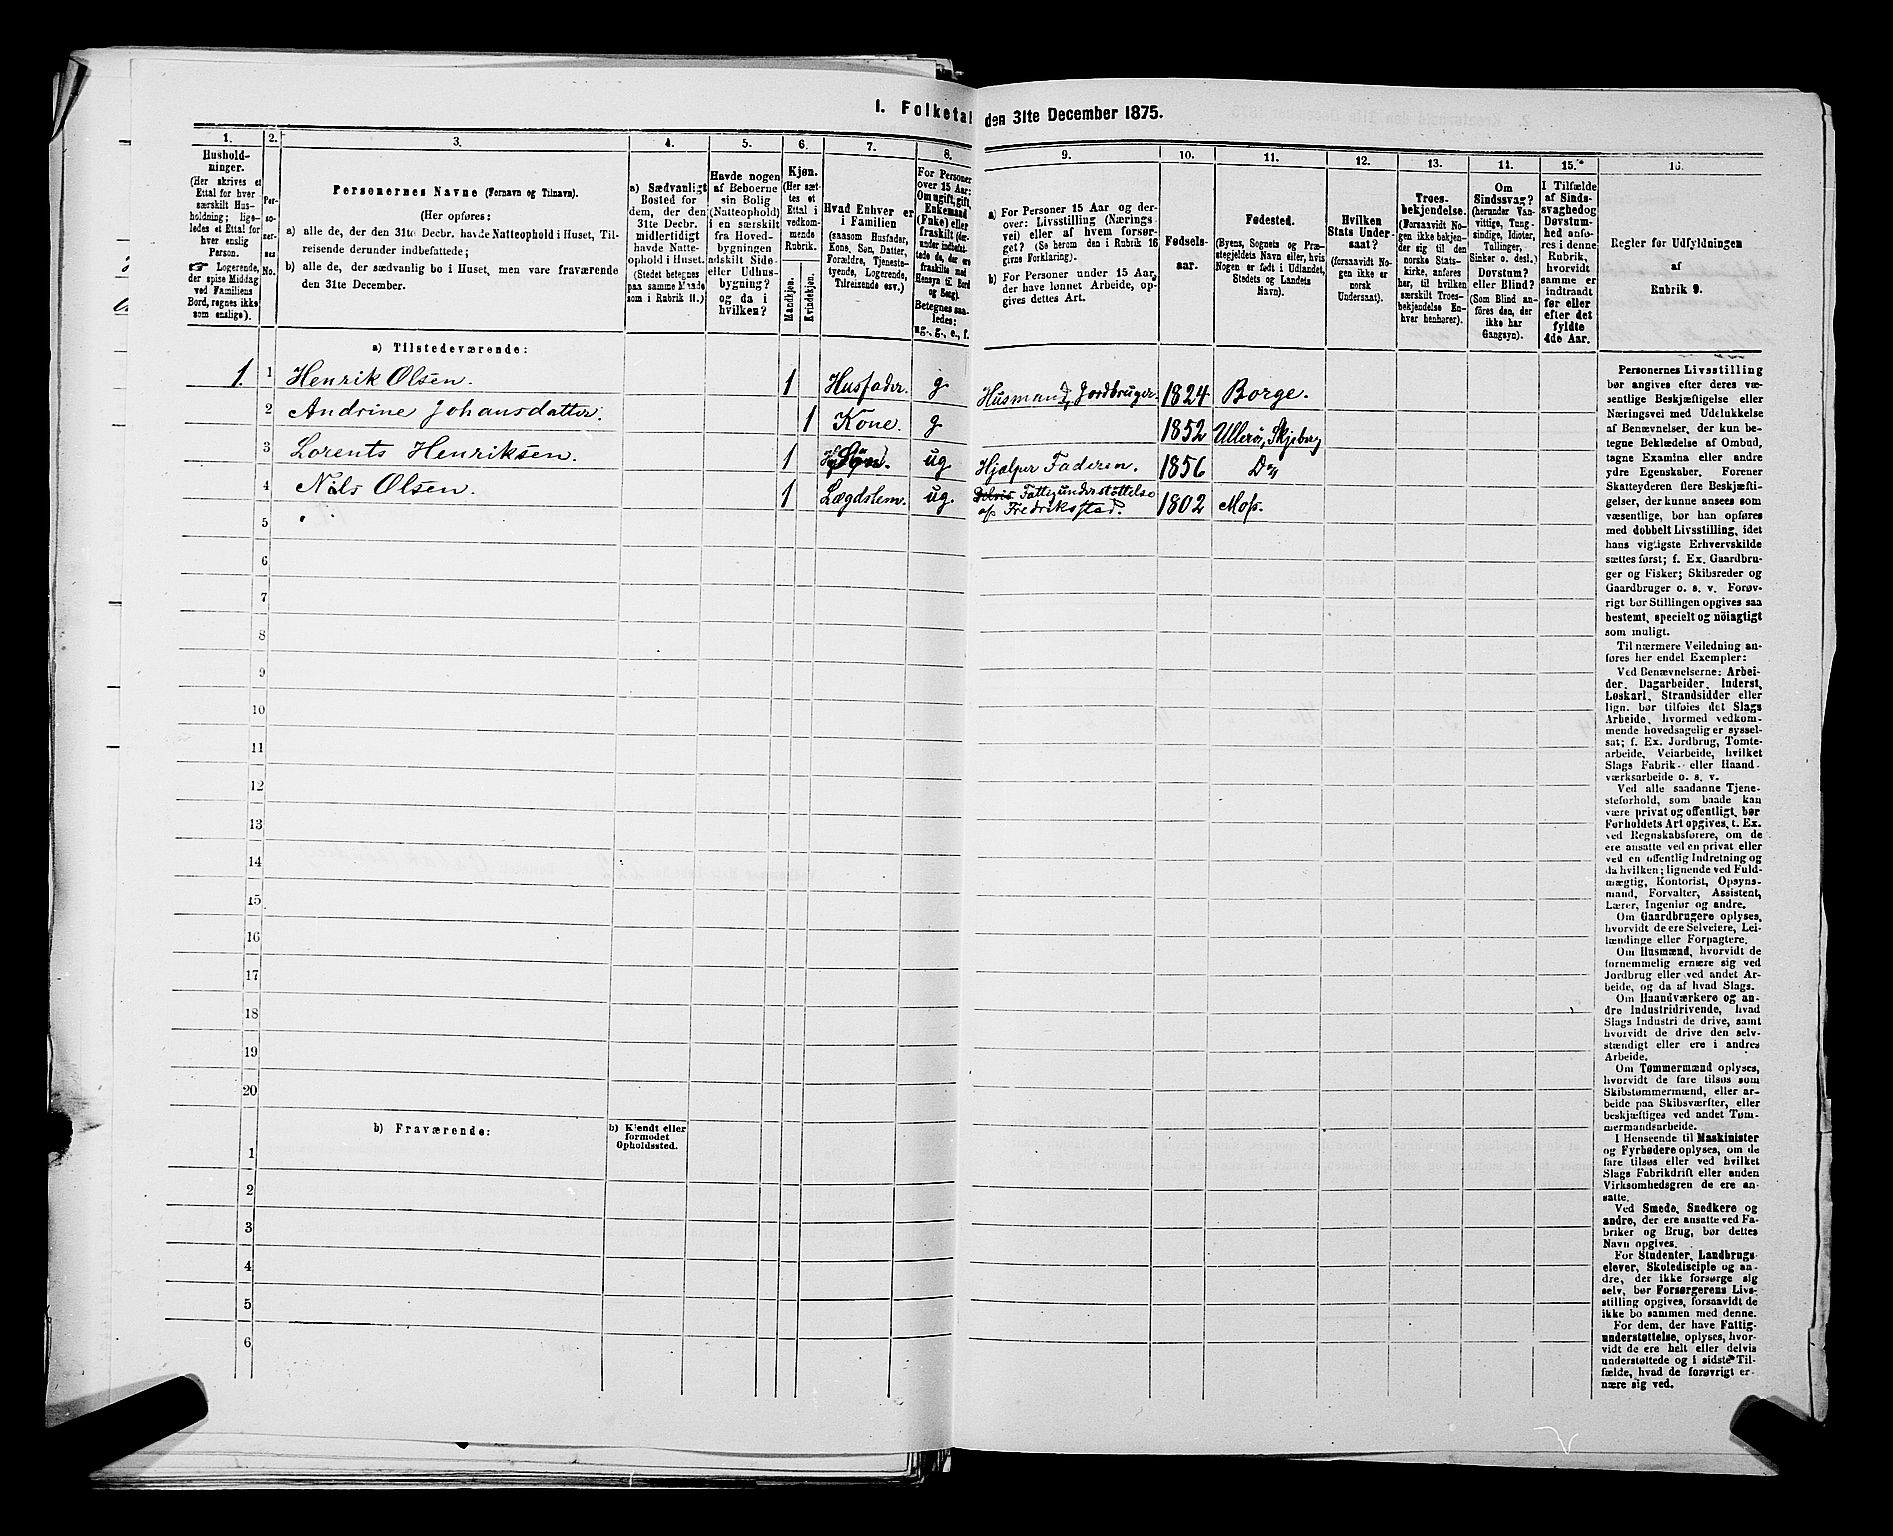 1. Folketal den 31te December 1875.
1.
2.
3.
4.
5.
6.
7.
8.
9.
10.
11.
12.
13.
14.
15.*
16.
Hushold-
ninger.
(Her skrives et
Ettal for hver
særskilt Hus-
holdning; lige-
ledes et Ettal for
hver enslig
Person.
☞ Logerende,
der spise Middag
ved Familiens
Bord, regnes ikke
som enslige).
Per-
so-
ner-
nes
No.
Personernes Navne (Fornavn og Tilnavn).
(Her opføres:
a) alle de, der den 31te Decbr. havde Natteophold i Huset, Til-
reisende derunder indbefattede;
b) alle de, der sædvanlig bo i Huset, men vare fraværende
den 31te December.
a) Sædvanligt
Bosted for
dem, der den
31te Decbr.
midlertidigt
havde Natte-
ophold i Huset.
(Stedet betegnes
paa samme Maade
som i Rubrik II.)
Havde nogen
af Beboerne
sin Bolig
(Natteophold)
i en særskilt
fra Hoved-
bygningen
adskilt Side-
eller Udhus-
bygning?
og da i
hvilken?
Kjøn.
(Her sæt-
tes et
Ettal i
vedkom-
mende
Rubrik.
Mandkjøn.
Kvindekjøn.
Hvad Enhver er
i Familien
(saasom Husfader,
Kone, Søn, Datter,
Forældre, Tjeneste-
tyende, Logerende,
Tilreisende osv.)
For Personer
over 15 Aar:
Om ugift, gift,
Enkemand
(Enke) eller
fraskilt (der-
under indbefat-
tede de, der ere
fraskilte med
Hensyn til Bord
og Seng).
Betegnes saa-
ledes:
ug., g., e., f.
a) For Personer 15 Aar og der-
over: Livsstilling (Nærings-
vei) eller af hvem forsør-
get? (Se herom den i Rubrik 16
givne Forklaring).
b) For Personer under 15 Aar,
der have lønnet Arbeide, op-
gives dettes Art.
Fødsels-
aar.
Fødested.
(Byens, Sognets og Præ-
stegjeldets Navn eller, hvis
Nogen er født i Udlandet,
Stedets og Landets
Navn).
Hvilken
Stats Under-
saat?
(forsaavidt No-
gen ikke er
norsk
Undersaat).
Troes-
bekjendelse.
(Forsaavidt No-
gen ikke bekjen-
der sig til den
norske Stats-
kirke, anføres
her, til hvilken
særskilt Troes-
bekjendelse En-
hver henhører).
Om
Sindssvag?
(herunder Van-
vittige, Tung-
sindige, Idioter,
Tullinger,
Sinker o. desl.)
Døvstum?
eller Blind?
(Som Blind an-
føres den, der
ikke har
Gangsyn).
I Tilfælde
af Sinds-
svaghed og
Døvstum-
hed anfø-
res i denne
Rubrik,
hvorvidt
samme er
indtraadt
før eller
efter det
fyldte
4de Aar.
Regler for Udfyldningen
af
Rubrik 9.
a) Tilstedeværende:
1. 1 Henrik Olsen. 1 Husfader. g Husmand, Jordbruger. 1824 Borge.
2 Andrine Johansdatter. 1 Kone. g 1852 Ullerø, Skjeberg
3 Lorents Henriksen. 1 Søn. ug Hjælper Faderen. 1856 Do
4 Nils Olsen. 1 Lægdslem. ug. Delvis Fattigunderstøttelse
af Fredriksstad. 1802 Moss.
5
6
7
8
9
10
11
12
13
14
15
16
17
18
19
20
b) Fraværende:
b) Kjendt eller
formodet
Opholdssted.
1
2
3
4
5
6
Personernes Livsstilling
bør angives efter deres væ-
sentlige Beskjæftigelse eller
Næringsvei med Udelukkelse
af Benævnelser, der kun be-
tegne Beklædelse af Ombud,
tagne Examina eller andre
ydre Egenskaber. Forener
Skatteyderen flere Beskjæfti-
gelser, der kunne ansees som
væsentlige, bør han opføres
med dobbelt Livsstilling, idet
hans vigtigste Erhvervskilde
sættes først; f. Ex. Gaardbru-
ger og Fisker; Skibsreder og
Gaardbruger o. s. v. Forøv-
rigt bør Stillingen opgives saa
bestemt, specielt og nöiagtigt
som muligt.
Til nærmere Veiledning an-
føres her endel Exempler:
Ved Benævnelserne: Arbei-
der, Dagarbeider, Inderst,
Løskarl, Strandsidder eller
lign. bør tilføies det Slags
Arbeide, hvormed vedkom-
mende hovedsagelig er syssel-
sat; f. Ex. Jordbrug, Tomte-
arbeide, Veiarbeide, hvilket
Slags Fabrik- eller Haand-
værksarbeide o. s. v.
Ved alle saadanne Tjene-
steforhold, som baade kan
være privat og offentligt, bør
Forholdets Art opgives, t. Ex.
ved Regnskabsførere, om de
ere ansatte ved en privat eller
ved en offentlig Indretning og
da hvilken; lignende ved Fuld-
mægtig, Kontorist, Opsyns-
mand, Forvalter, Assistent,
Lærer, Ingeniør og andre.
Om Gaardbrugere oplyses,
hvorvidt de ere Selveiere, Lei-
lændinge eller Forpagtere.
Om Husmænd, hvorvidt de
fornemmelig ernære sig ved
Jordbrug eller ved andet Ar-
beide, og da af hvad Slags.
Om Haandværkere og an-
dre Industridrivende, hvad
Slags Industri de drive, samt
hvorvidt de drive den selv-
stændigt eller ere i andres
Arbeide.
Om Tømmermænd oplyses,
hvorvidt de fare tilsøs som
Skibstømmermænd, eller ar-
beide paa Skibsværfter, eller
beskjæftiges ved andet Tøm-
mermandsarbeide.
I Henseende til Maskinister
og Fyrbødere oplyses, om de
fare tilsøs eller ved hvilket
Slags Fabrikdrift eller anden
Virksomhedsgren de ere an-
satte.
Ved Smede, Snedkere og
andre, der ere ansatte ved Fa-
briker og Brug, bør dettes
Navn opgives.
For Studenter, Landbrugs-
elever, Skoledisciple og an-
dre, der ikke forsørge sig
selv, bør Forsørgerens Livs-
stilling opgives, forsaavidt de
ikke bo sammen med denne.
For dem, der have Fattig-
understøttelse, oplyses, hvor-
vidt de ere helt eller delvis
understøttede og i sidste Til-
fælde, hvad de forøvrigt er-
nære sig ved.